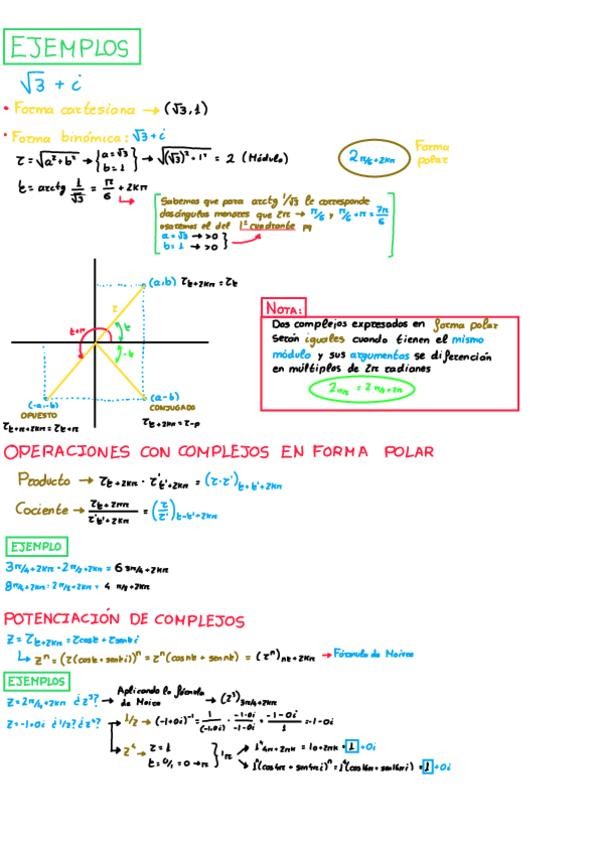 EJEMPLOS
√3 + i
• Forma cartesiana → (√3, 1)
• Forma binómica: √3 + i
τ = √a²+b² → {a=√3 b=1} → √(√3)²+1² = 2 (Módulo)
2π/6+2kπ
Forma polar
t = arctg 1/√3 = π/6 + 2kπ
Sabemos que para arctg 1/√3 le corresponde
dos ángulos menores que 2π → π/6 y π/6+π = 7π/6
usaremos el del 1º cuadrante pq
a = √3 → >0
b = 1 → >0
(a,b) τt+2kπ = τt
τ
t+π
t
-t
(-a,-b)
OPUESTO
τt+π+2kπ = τt+π
(a-b)
CONJUGADO
τt+2kπ = τ-p
NOTA:
Dos complejos expresados en forma polar
serán iguales cuando tienen el mismo
módulo y sus argumentos se diferencian
en múltiplos de 2π radianes
OPERACIONES CON COMPLEJOS EN FORMA POLAR
Producto → τt+2kπ · τ't'+2kπ = (τ·τ')t+t'+2kπ
Cociente → τt+2πn / τ't'+2kπ = (τ/τ')t-t'+2kπ
EJEMPLO
3π/4+2kπ · 2π/2+2kπ = 6 3π/4+2kπ
8π/4+2kπ : 2π/2+2kπ = 4 π/4+2kπ
POTENCIACIÓN DE COMPLEJOS
Z = τt+2kπ = τcost + τsent i
↳ zⁿ = (τ(cost + sent i))ⁿ = τⁿ(cosnt + sennt) = (τⁿ)nt+2kπ → Fórmula de Moivre
EJEMPLOS
Z = 2π/4+2kπ ¿z³? → Aplicando la fórmula de Moivre → (2³)3π/4+2kπ
Z = -1+0i ¿1/z? ¿z⁴? → 1/z → (-1+0i)⁻¹ = 1/(-1,0i) · -1-0i/-1-0i = -1-0i/1 = -1-0i
z⁴ → τ = 1
t = 0/1 = 0 → π
1π
→ 1⁴4π+2πk = 10+2πk = 1 + 0i
→ 1⁴(cos4π + sen4π i)ⁿ = 1⁴(cos16π + sen16π i) = 1 + 0i